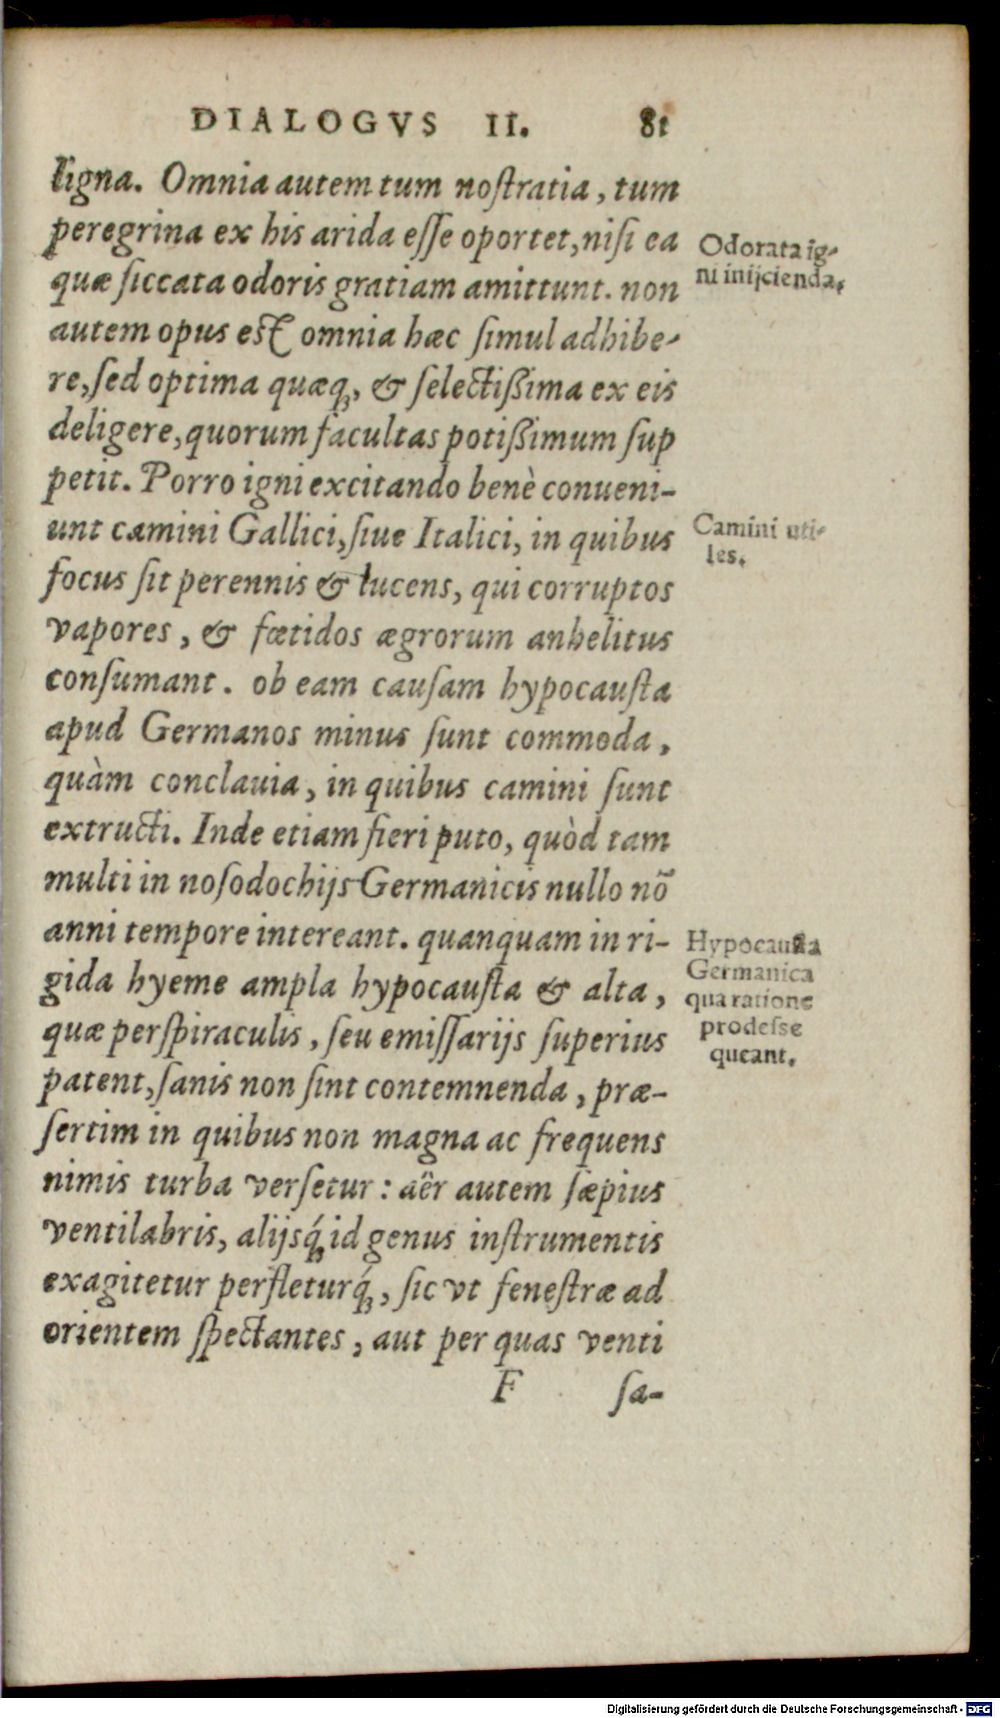 DIALOGVS II. 81
ligna. Omnia autem tum noſtratia, tum
peregrina ex his arida eſſe oportet, niſi ea
quæ ſiccata odoris gratiam amittunt. non
autem opus eſt omnia hæc ſimul adhibe-
re, ſed optima quæq́, & ſelectißima ex eis
deligere, quorum facultas potißimum ſup
petit. Porro igni excitando benè conueni-
unt camini Gallici, ſiue Italici, in quibus
focus ſit perennis & lucens, qui corruptos
vapores, & fœtidos ægrorum anhelitus
conſumant. ob eam cauſam hypocauſta
apud Germanos minus ſunt commoda,
quàm conclauia, in quibus camini ſunt
extructi. Inde etiam fieri puto, quòd tam
multi in noſodochijs Germanicis nullo nō
anni tempore intereant. quanquam in ri-
gida hyeme ampla hypocauſta & alta,
quæ perſpiraculis, ſeu emiſſarijs ſuperius
patent, ſanis non ſint contemnenda, præ-
ſertim in quibus non magna ac frequens
nimis turba verſetur: aër autem ſæpius
ventilabris, alijsq́ id genus inſtrumentis
exagitetur perfleturq́, ſic vt feneſtræ ad
orientem ſpectantes, aut per quas venti
F ſa-
Odorata ig-
ni inijcienda.
Camini uti-
les.
Hypocauſta
Germanica
qua ratione
prodeſse
queant.
Digitalisierung gefördert durch die Deutsche Forschungsgemeinschaft - DFG